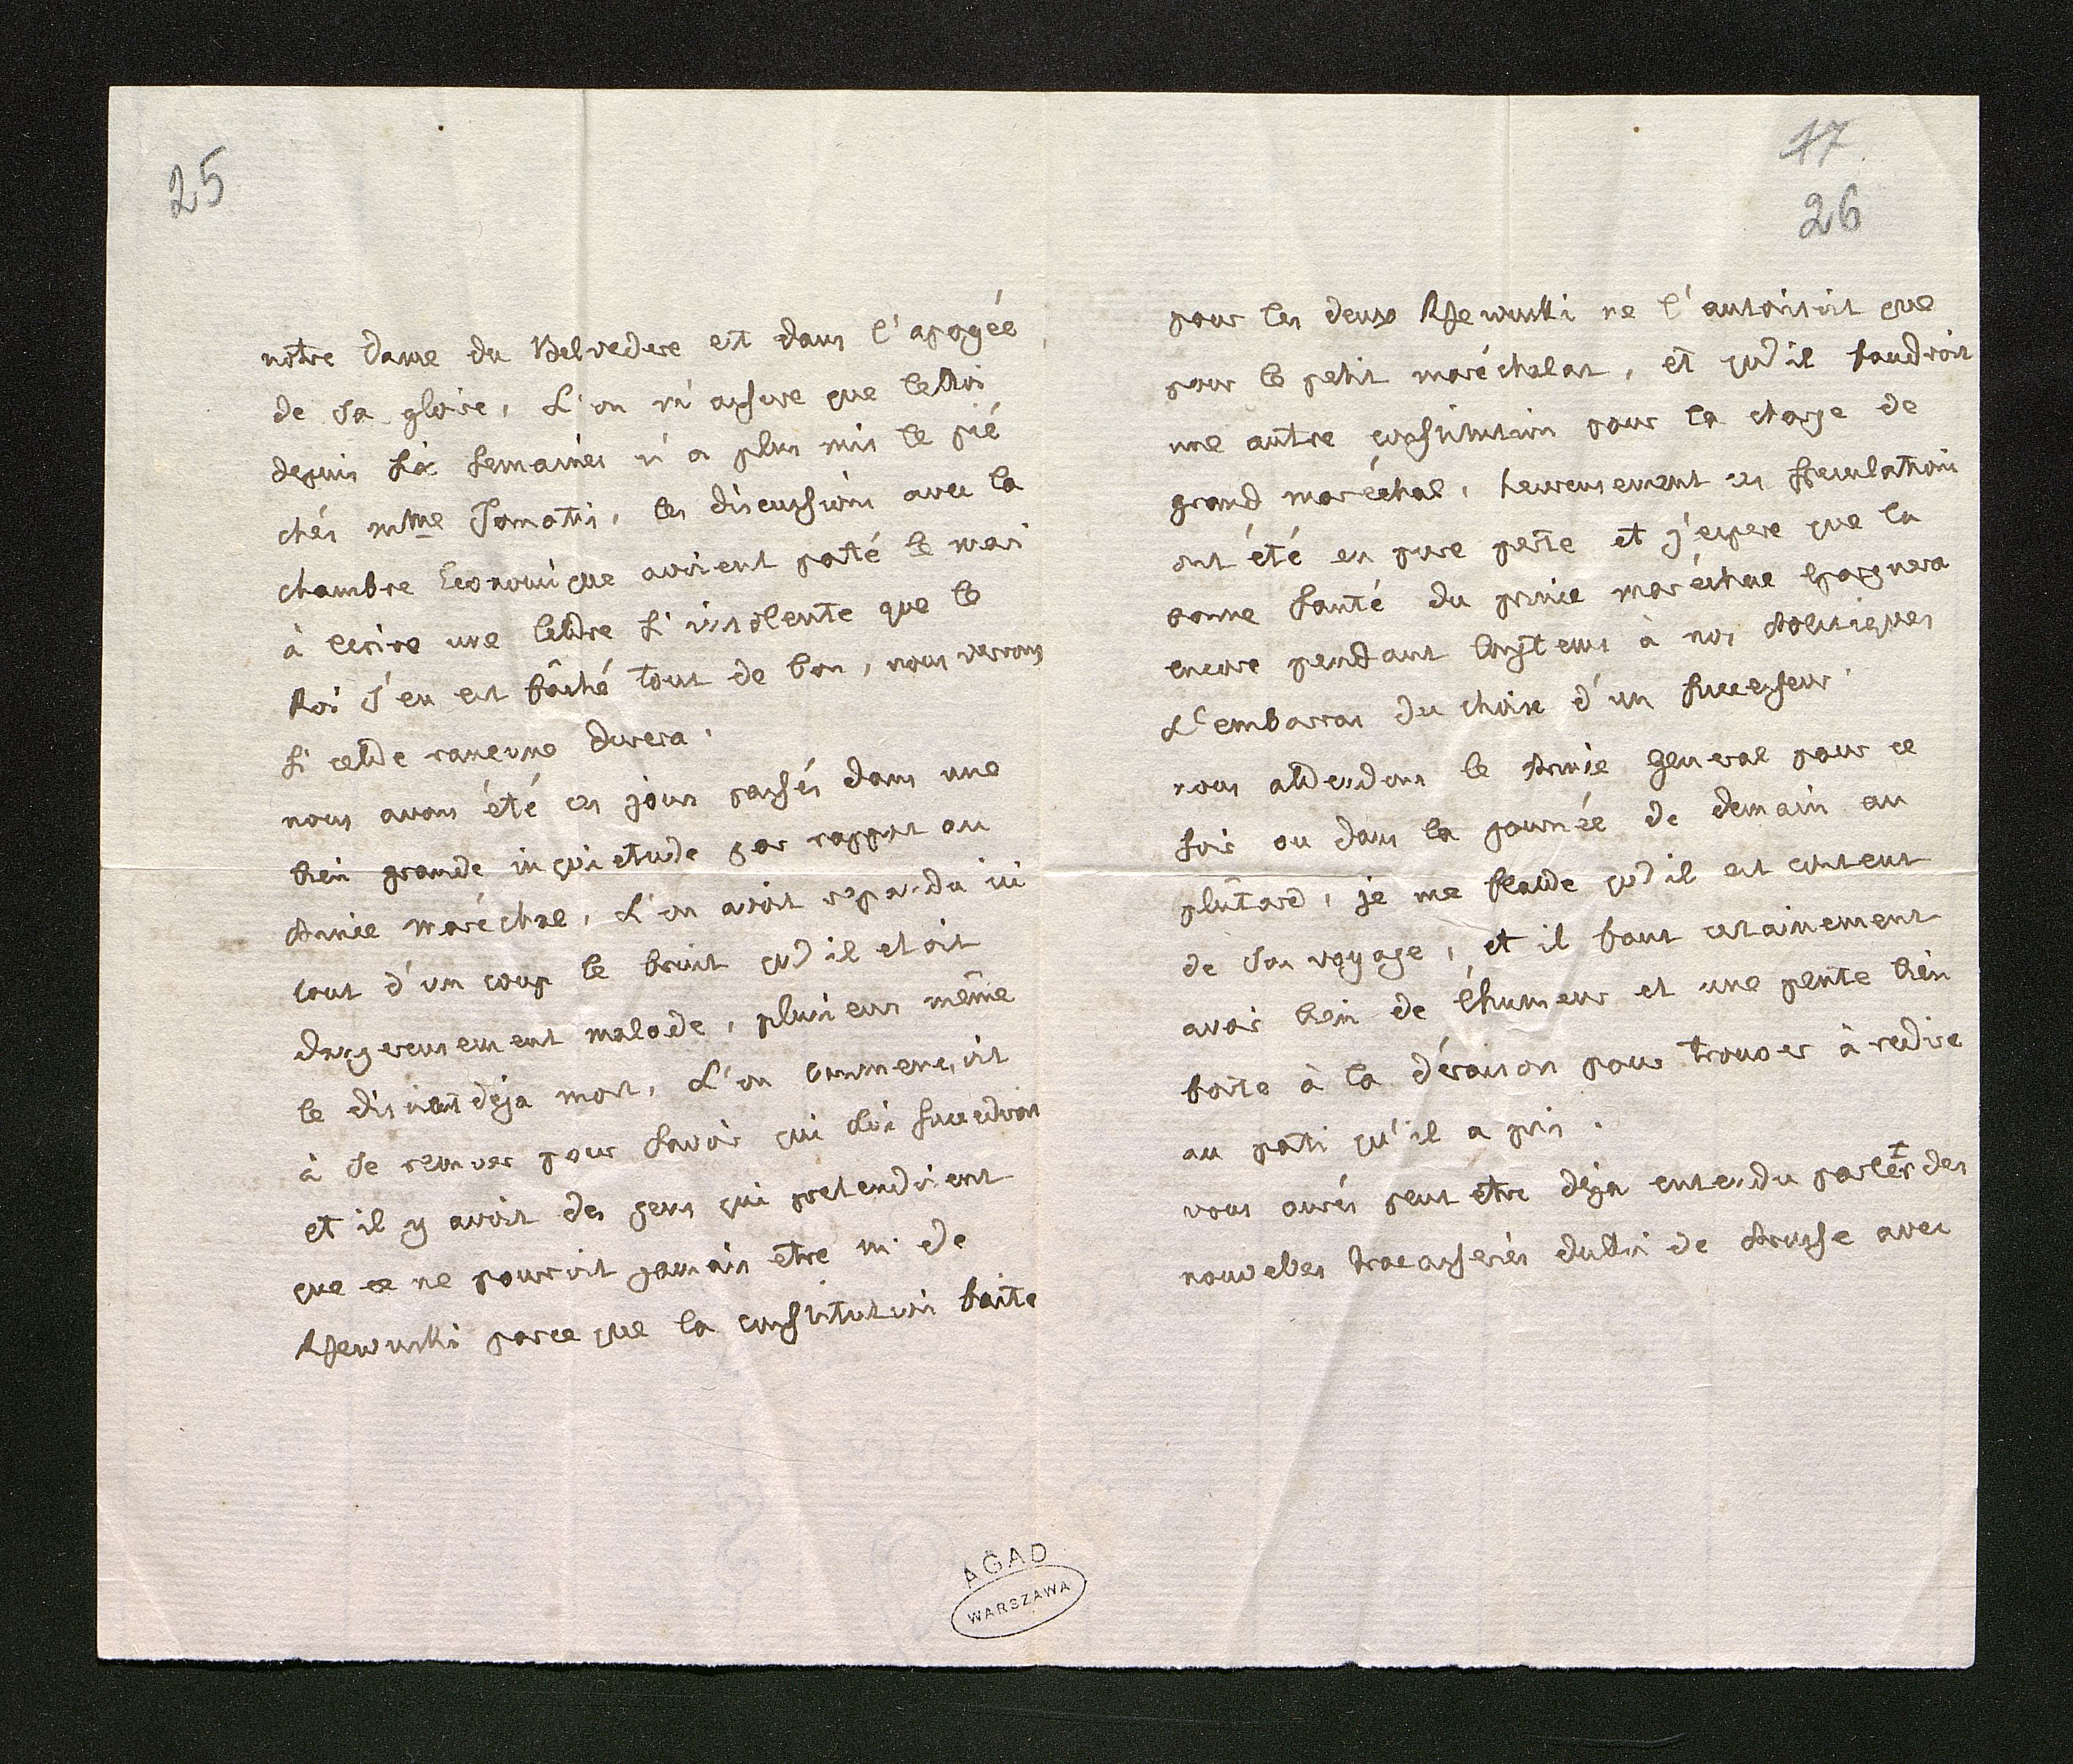 25
notre Dame du Belvedere est dans l'apogée
de sa gloire, L'on m'assure que le Roi
depuis six semaines n'a plus mis le pié
chés mme Tomatis, les discussions avec la
chambre Economique avoient porté le mari
à lecrire une lettre si insolente que le
Roi s'en est fâché tout de bon, nous verrons
si cette rancune durera.
nous avons été ces jours passés dans une
bien grande inquietude par rapport au
Prince maréchal, L'on avoit repandu ici
tout d'un coup le bruit qu'il etoit
dangereusement malade, plusieurs même
le disoient déja mort, L'on commençoit
à se remuer pour savoir qui lui succedroit
et il y avoit des gens qui pretendoient
que ce ne pourroit jamais etre m. de
Rzewuski parce que la constitution faite
17
26
pour les deux Rzewuski ne l'autorisoit que
pour le petit maréchalat, et qu'il faudroit
une autre constitution pour la charge de
grand maréchal, heureusement ces speculations
ont été en pure perte et j'espere que la
bonne santé du prince maréchal epargnera
encore pendant longtems à nos Politiques
L'embarras du choix d'un successeur.
nous attendons le Prince General pour ce
soir ou dans la journée de demain au
plûtard, je me flatte qu'il est content
de son voyage, et il faut certainement
avoir bien de l'humeur et une pente bien
forte à la déraison pour trouver à redire
au parti qu'il a pris.
vous aurés peut etre déja entendu parler des
nouvelles tracasseries du Roi de Prusse avec
AGAD
WARSZAWA